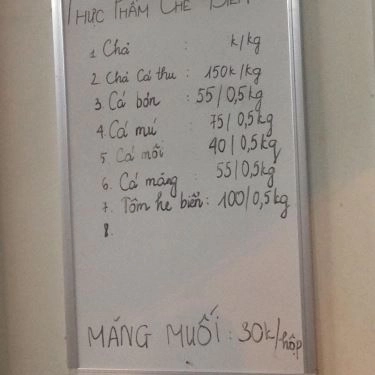 THỰC PHẨM CHẾ BIẾN
1 Chả : k/kg
2 Chả Cá thu : 150k/kg
3 Cá bớn : 55/0,5kg
4. Cá mú : 75/0,5kg
5. Cá mối : 40/0,5kg
6. Cá măng : 55/0,5kg
7. Tôm he biển : 100/0,5kg
8.
MĂNG MUỐI : 30k/hộp